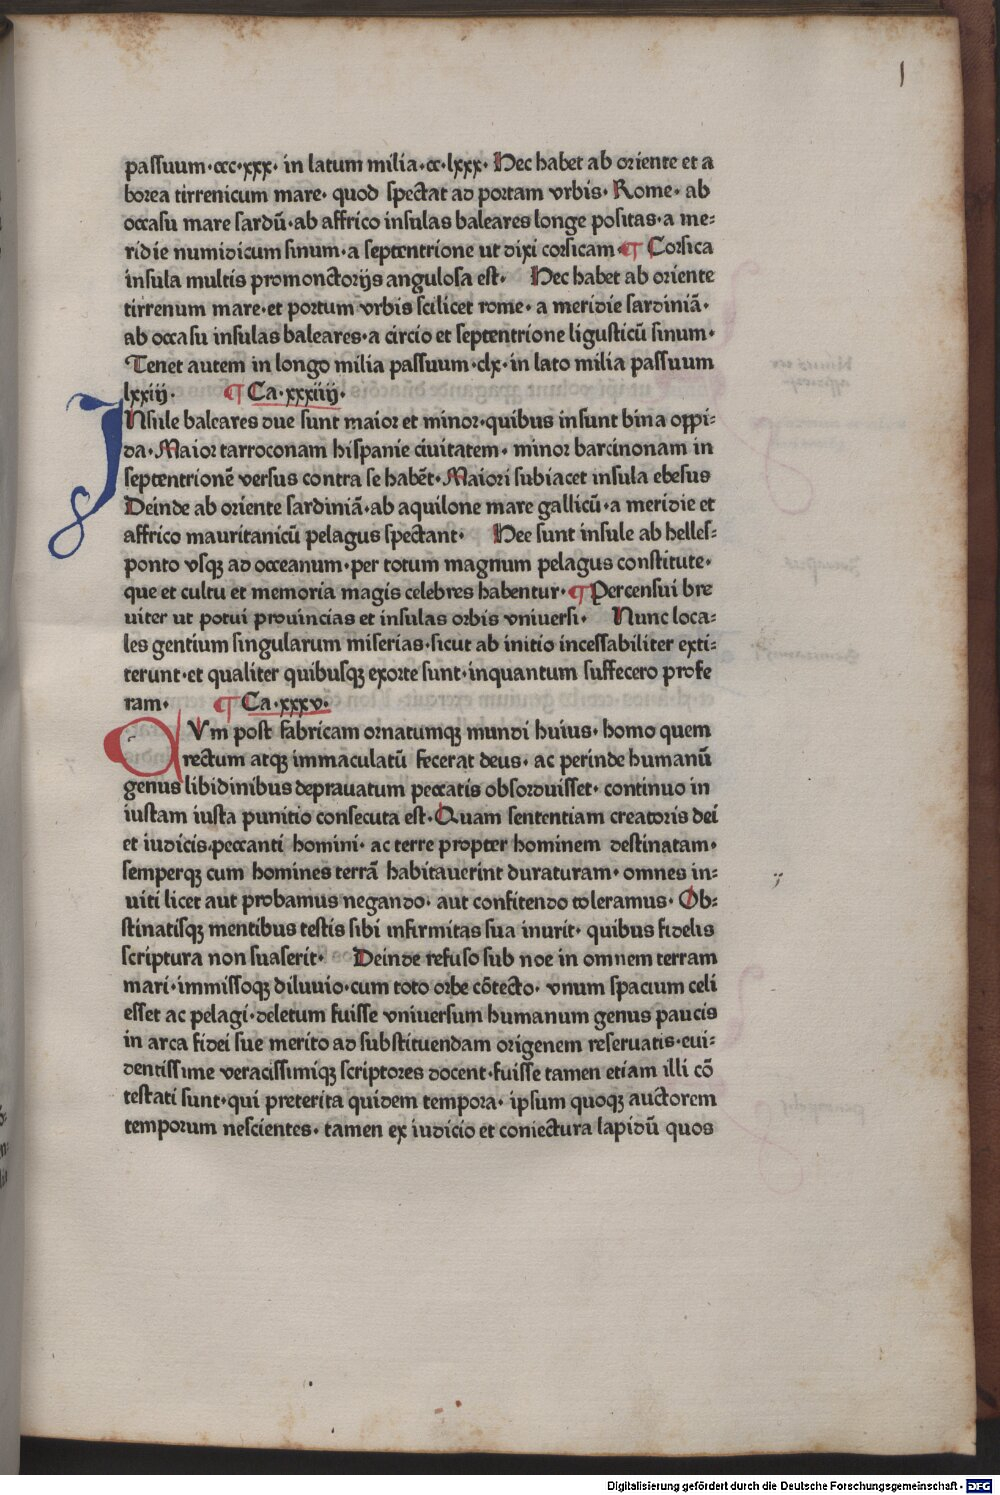 l
passuum·ccc·xxx· in latum milia·cc·lxxx· Hec habet ab oriente et a
borea tirrenicum mare· quod spectat ad portam vrbis· Rome· ab
occasu mare sardū·ab affrico insulas baleares longe positas·a me⸗
ridie numidicum sinum·a septentrione ut dixi corsicam·¶ Corsica
insula multis promonctorijs angulosa est· Hec habet ab oriente
tirrenum mare·et portum vrbis scilicet rome· a meridie sardiniā·
ab occasu insulas baleares·a circio et septentrione ligusticū sinum·
Tenet autem in longo milia passuum·clx·in lato milia passuum
lxxiij· ¶ Ca·xxxiiij·
INsule baleares due sunt maior et minor·quibus insunt bina oppi⸗
da·Maior tarroconam hispanie ciuitatem· minor barcinonam in
septentrionē versus contra se habēt·Maiori subiacet insula ebesus
Deinde ab oriente sardiniā·ab aquilone mare gallicū·a meridie et
affrico mauritanicū pelagus spectant· Hee sunt insule ab helles⸗
ponto vsqꝫ ad occeanum·per totum magnum pelagus constitute·
que et cultu et memoria magis celebres habentur·¶ Percensui bre
uiter ut potui prouincias et insulas orbis vniuersi· Nunc loca⸗
les gentium singularum miserias·sicut ab initio incessabiliter exti⸗
terunt·et qualiter quibusqꝫ exorte sunt·inquantum suffecero profe
ram· ¶ Ca·xxxv·
QVm post fabricam ornatumqꝫ mundi huius· homo quem
rectum atqꝫ immaculatū fecerat deus· ac perinde humanū
genus libidinibus deprauatum peccatis obsorduisset· continuo in
iustam iusta punitio consecuta est·Quam sententiam creatoris dei
et iudicis·peccanti homini· ac terre propter hominem destinatam·
semperqꝫ cum homines terrā habitauerint duraturam· omnes in⸗
uiti licet aut probamus negando· aut confitendo toleramus· Ob⸗
stinatisqꝫ mentibus testis sibi infirmitas sua inurit· quibus fidelis
scriptura non suaserit· Deinde refuso sub noe in omnem terram
mari·immissoqꝫ diluuio·cum toto orbe cōtecto· vnum spacium celi
esset ac pelagi·deletum fuisse vniuersum humanum genus paucis
in arca fidei sue merito ad substituendam origenem reseruatis·eui⸗
dentissime veracissimiqꝫ scriptores docent·fuisse tamen etiam illi cō
testati sunt·qui preterita quidem tempora· ipsum quoqꝫ auctorem
temporum nescientes· tamen ex iudicio et coniectura lapidū quos
Digitalisierung gefördert durch die Deutsche Forschungsgemeinschaft - DFG